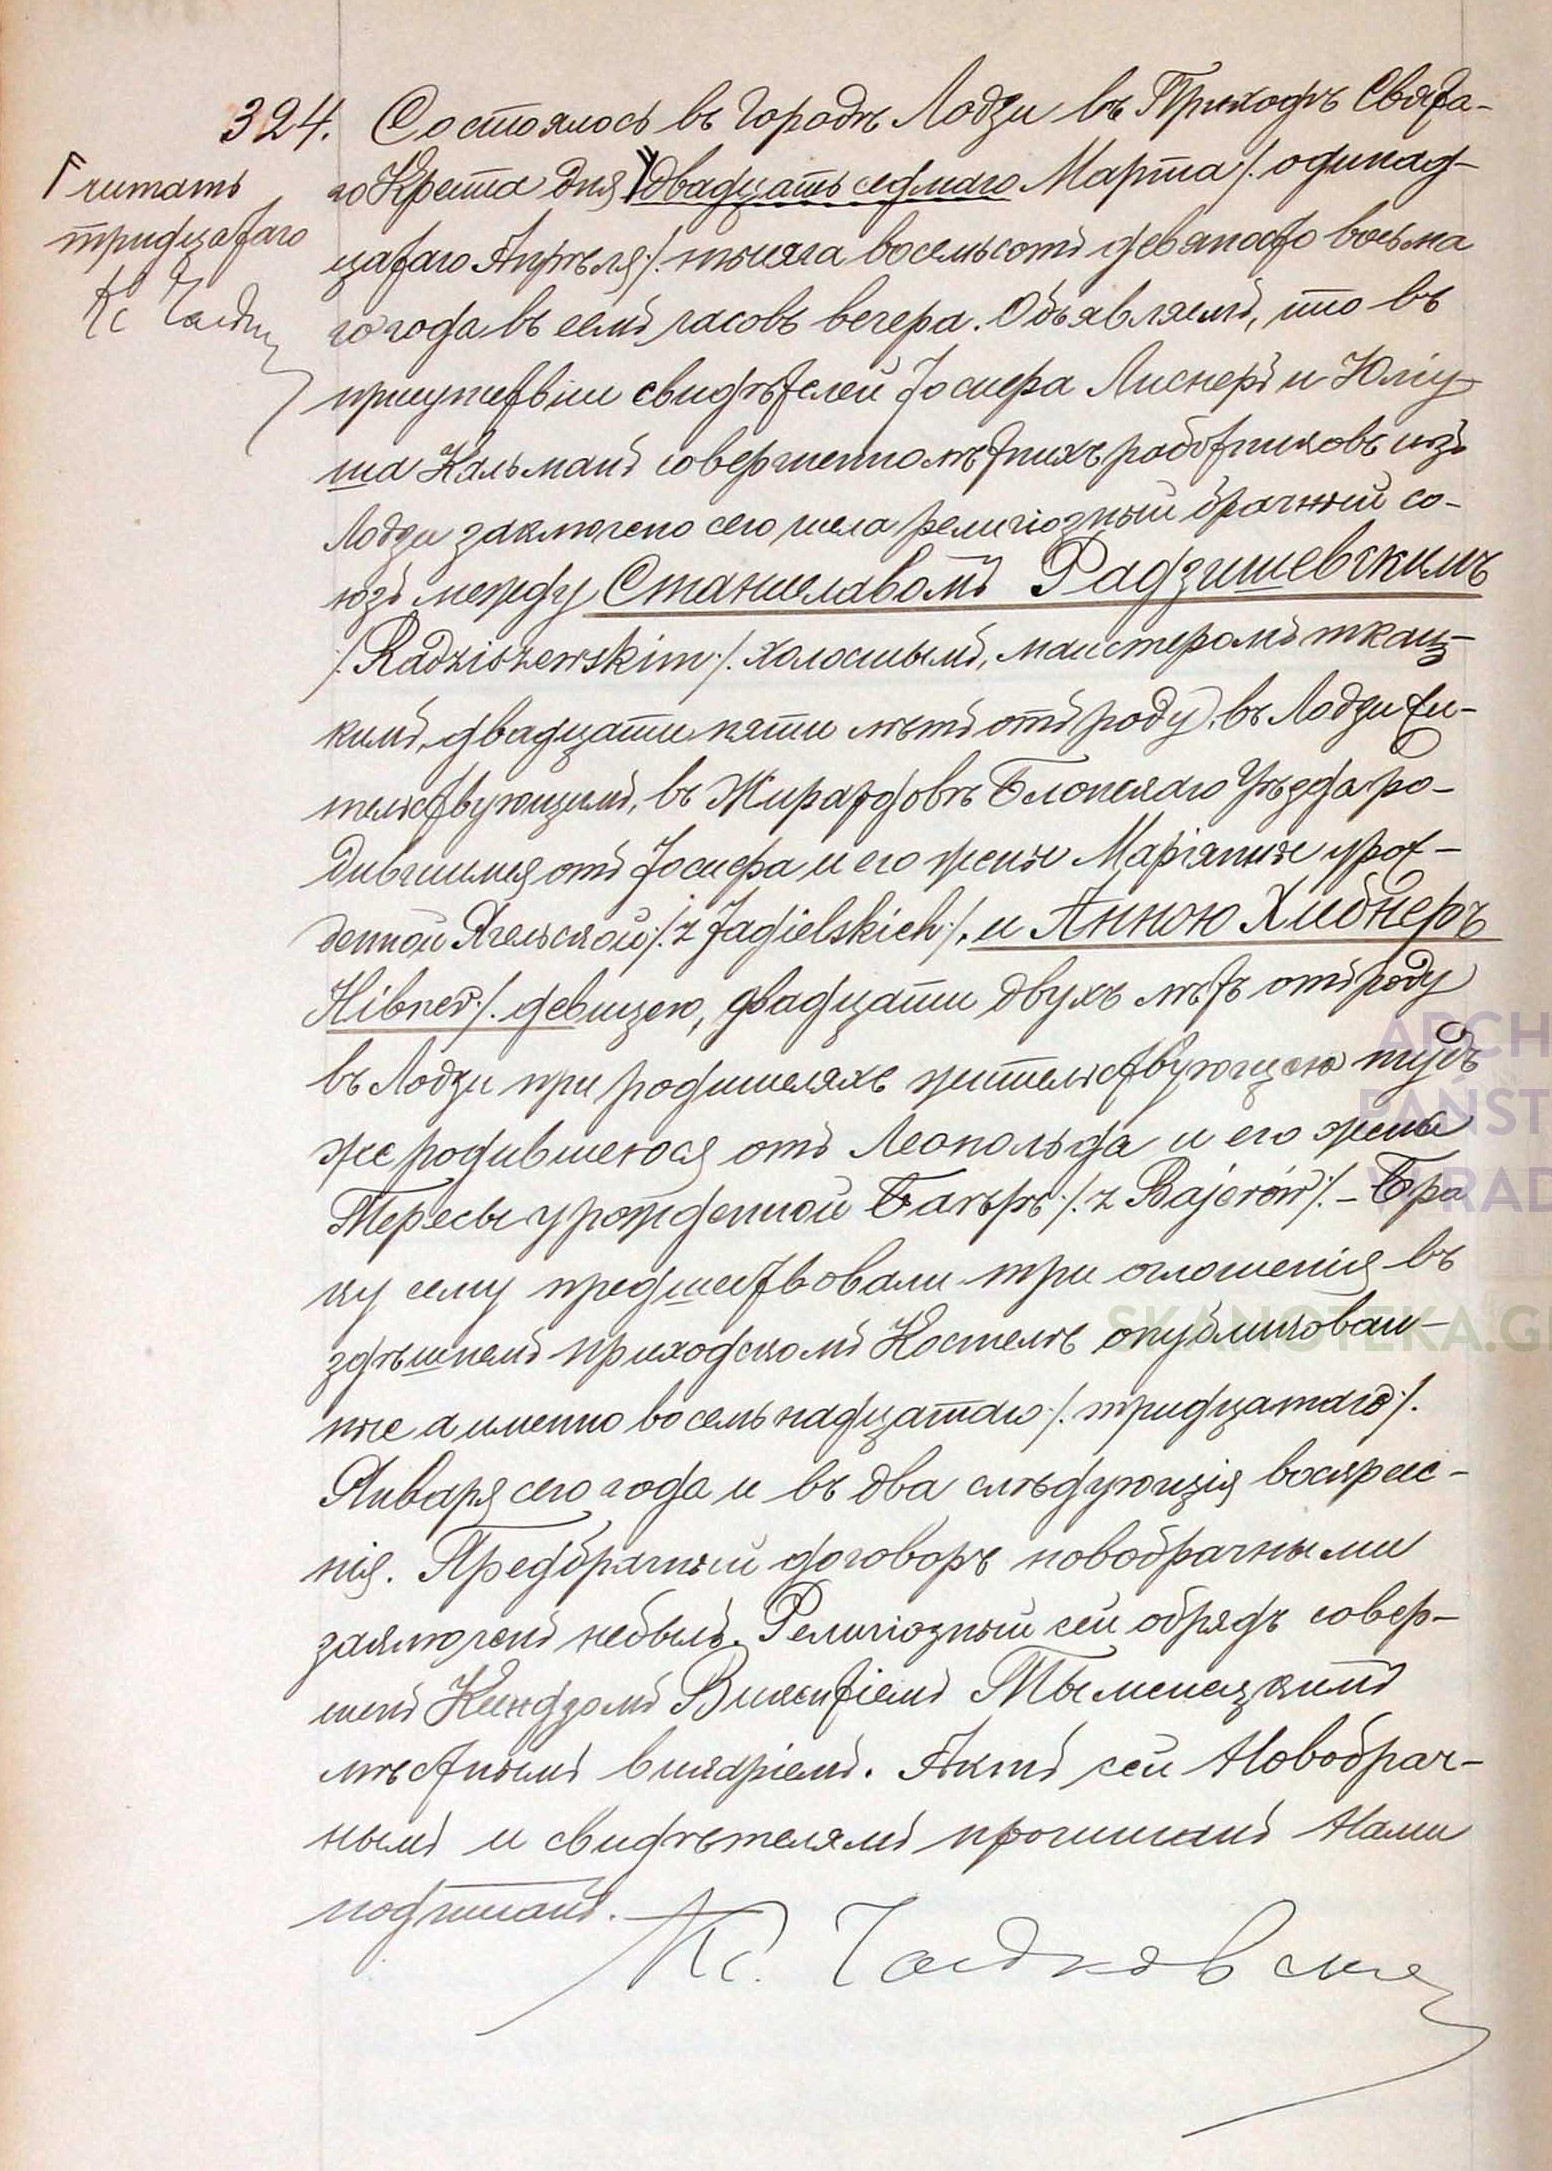 324. Состоялось въ Городѣ Лодзи въ Приходѣ Свята-
го Креста дня двадцать седмаго Марта /. одинад-
читать
тридцатаго
Кс
цатаго Апрѣля ./ тысяча восемьсотъ девяносто восьма
го года въ семь часовъ вечера. Объявляемъ, что въ
присутствіи свидѣтелей Іосифа Лиснеръ и Юлiу-
ша Кальманъ совершеннолѣтнихъ работниковъ изъ
Лодзи заключено сего числа религіозный брачный со-
юзъ между Станиславомъ Радзишевскимъ
/. Radziszewskim ./ холостымъ, маистеромъ ткац-
кимъ, двадцати пяти лѣтъ отъ роду, въ Лодзи жи-
тельствующимъ, въ Жирардовѣ Блонскаго Уѣзда ро-
дившимся отъ Іосифа и его жены Маріянны урож-
денной Ягельской /. z Jagielskich ./, и Анною Хибнеръ
Hibner ./ девицею, двадцати двухъ лѣтъ отъ роду
въ Лодзи при родителяхъ жительствующею тудъ
же родившеюся отъ Леопольда и его жены
Тересы урожденной Баеръ /. z Bajerów ./ – Бра
ку сему предшествовали три оглошенія въ
здѣшнемъ приходскомъ Костелѣ опубликован-
ные а именно восемьнадцатаго /. тридцатаго ./
Января сего года и въ два слѣдующія воскресе-
нія. Предбрачный договоръ новобрачными
заключенъ небылъ. Религіозный сей обрядъ совер-
шенъ Ксендзомъ Викентіемъ Тыменецкимъ
мѣстнымъ викаріемъ. Актъ сей Новобрач-
нымъ и свидѣтелямъ прочитанъ Нами
подписанъ. Кс.
ARCH
PAŃST
W RAD
SKANOTEKA.G